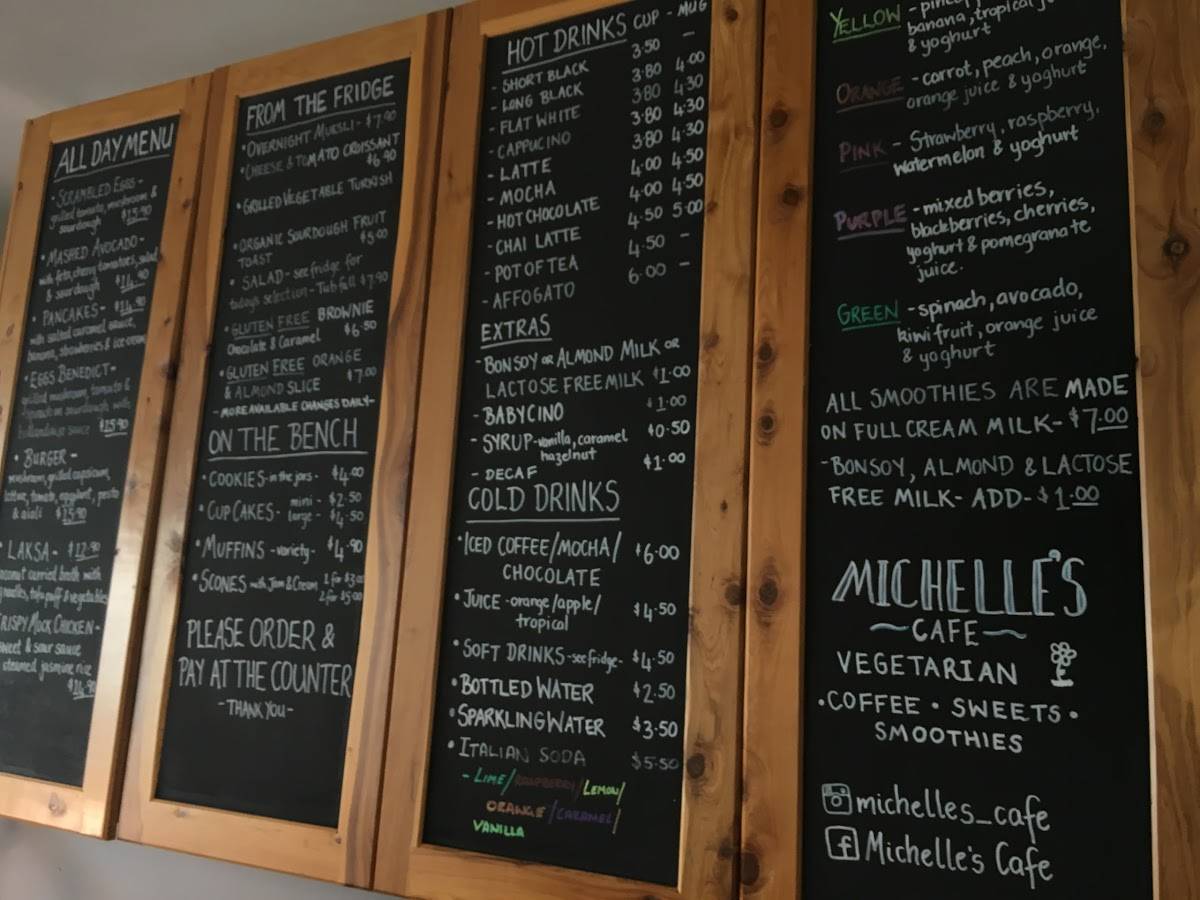 ALL DAY MENU
• SCRAMBLED EGGS -
grilled tomato, mushroom &
sourdough $15.90
• MASHED AVOCADO -
with feta, cherry tomatoes, salad
& sourdough $14.90
• PANCAKES - $14.90
with salted caramel sauce,
banana, strawberries & ice cream
• EGGS BENEDICT -
grilled mushroom, tomato &
on sourdough, with
hollandaise sauce $15.90
• BURGER -
mushroom, grilled capsicum,
lettuce, tomato, eggplant, pesto
& aioli $15.90
• LAKSA - $12.90
coconut curried broth with
noodles, tofu puff & vegetables
CRISPY MOCK CHICKEN -
sweet & sour sauce
steamed jasmine rice
$14.90
FROM THE FRIDGE
• OVERNIGHT MUESLI - $7.90
• CHEESE & TOMATO CROISSANT
$6.90
• GRILLED VEGETABLE TURKISH
• ORGANIC SOURDOUGH FRUIT
TOAST $5.00
• SALAD - see fridge for
todays selection - Tub full $7.90
• GLUTEN FREE BROWNIE
Chocolate & Caramel $6.50
• GLUTEN FREE ORANGE
& ALMOND SLICE $7.00
- MORE AVAILABLE CHANGES DAILY -
ON THE BENCH
• COOKIES - in the jars - $4.00
• CUP CAKES - mini - $2.50
large - $4.50
• MUFFINS - variety - $4.90
• SCONES with Jam & Cream 1 for $3.00
2 for $5.00
PLEASE ORDER &
PAY AT THE COUNTER
- THANK YOU -
HOT DRINKS CUP - MUG
- SHORT BLACK 3.50 -
- LONG BLACK 3.80 4.00
- FLAT WHITE 3.80 4.30
- CAPPUCINO 3.80 4.30
- LATTE 3.80 4.30
- MOCHA 4.00 4.50
- HOT CHOCOLATE 4.00 4.50
- CHAI LATTE 4.50 5.00
- POT OF TEA 4.50 -
- AFFOGATO 6.00 -
EXTRAS
- BONSOY OR ALMOND MILK OR
LACTOSE FREE MILK $1.00
- BABYCINO $1.00
- SYRUP - vanilla, caramel $0.50
hazelnut
- DECAF $1.00
COLD DRINKS
• ICED COFFEE/MOCHA/ $6.00
CHOCOLATE
• JUICE - orange/apple/ $4.50
tropical
• SOFT DRINKS - see fridge - $4.50
• BOTTLED WATER $2.50
• SPARKLING WATER $3.50
• ITALIAN SODA $5.50
- LIME/RASPBERRY/LEMON/
ORANGE/CARAMEL/
VANILLA
YELLOW
banana, tropical
& yoghurt
ORANGE - carrot, peach, orange,
orange juice & yoghurt
PINK - Strawberry, raspberry,
watermelon & yoghurt
PURPLE - mixed berries,
blackberries, cherries,
yoghurt & pomegranate
juice.
GREEN - spinach, avocado,
kiwi fruit, orange juice
& yoghurt
ALL SMOOTHIES ARE MADE
ON FULL CREAM MILK - $7.00
- BONSOY, ALMOND & LACTOSE
FREE MILK - ADD - $1.00
MICHELLE'S
~ CAFE ~
VEGETARIAN
• COFFEE • SWEETS •
SMOOTHIES
michelles_cafe
Michelle's Cafe